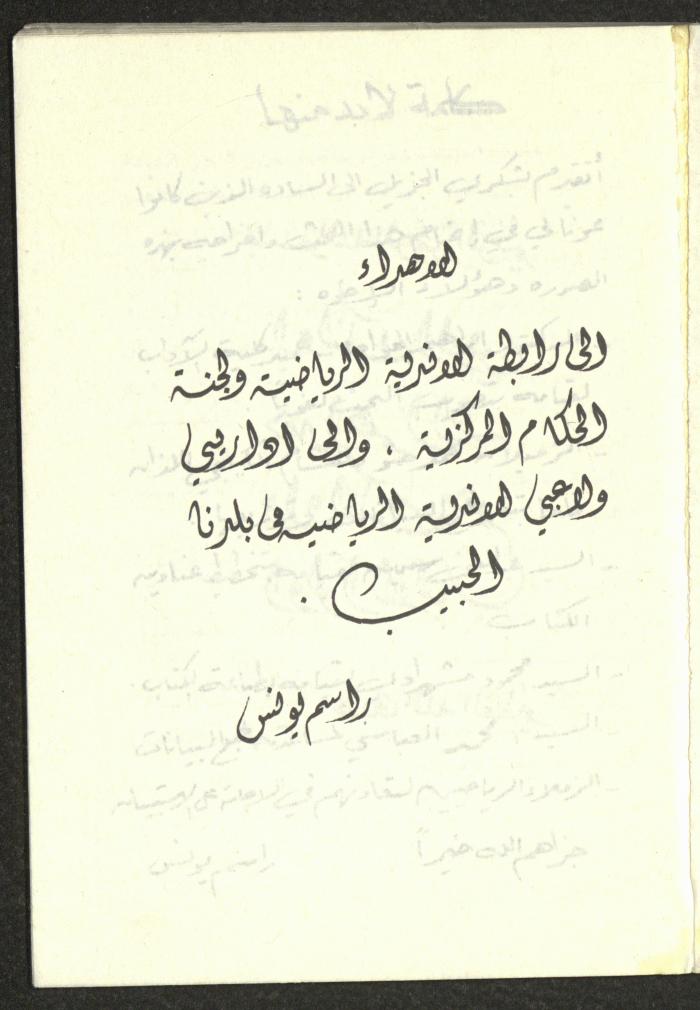 الاهداء
الى رابطة الاندية الرياضية ولجنة
الحكام المركزية . والى اداريي
ولاعبي الاندية الرياضية في بلدنا
الحبيب .
راسم يونس